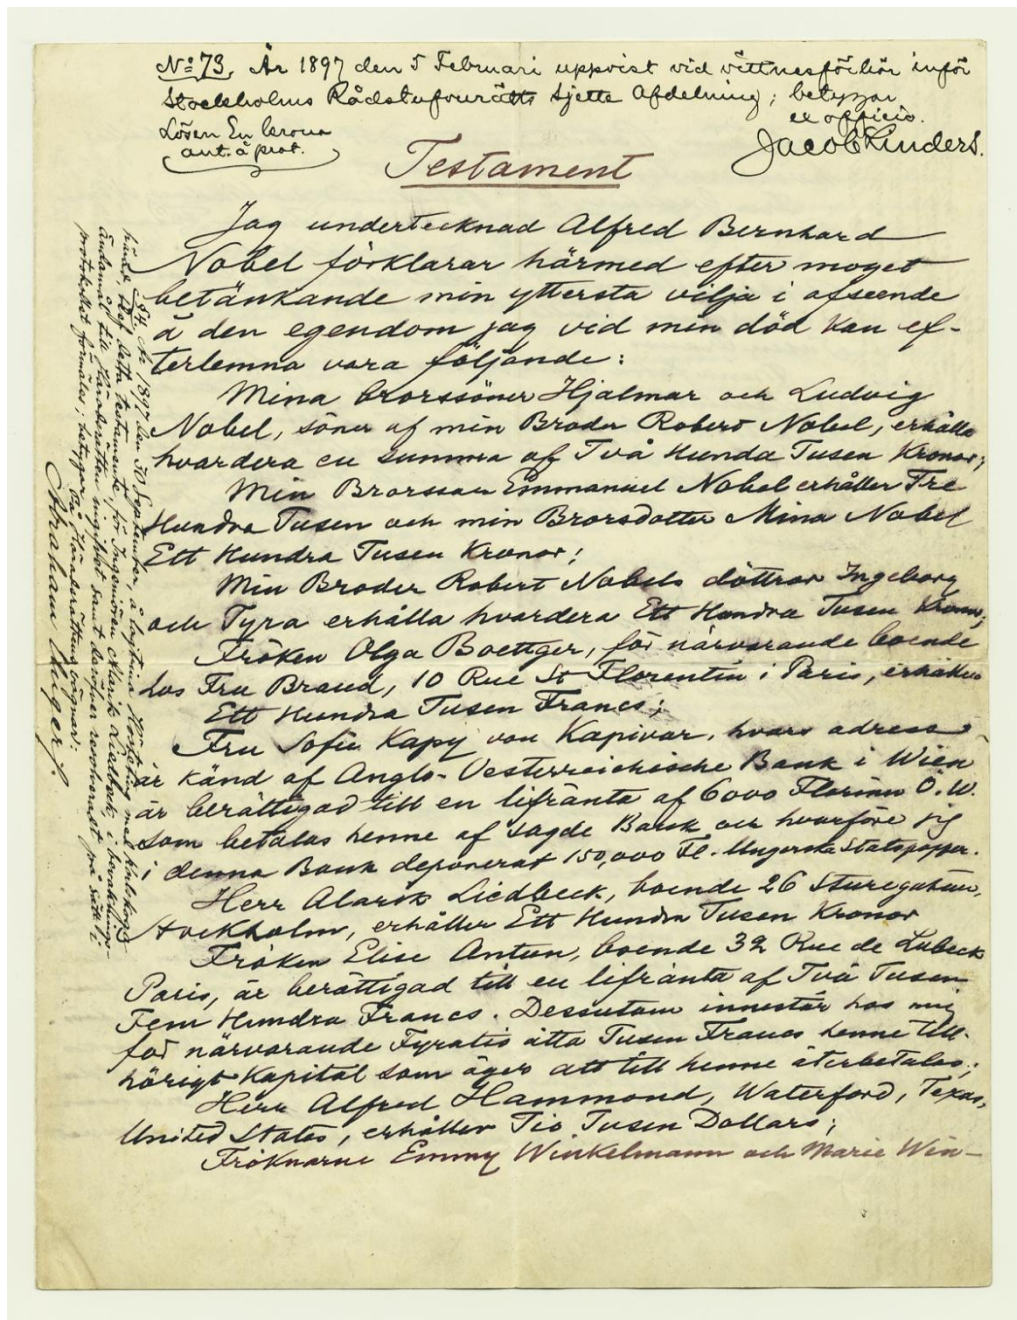 No 73. År 1897 den 5 Februari uppvist vid vittnesförhör inför
Stockholms Rådstufvurätts sjette Afdelning; betygar
ex officio.
Lösen En krona
ant. å prot.
Jacob Linders.
Testament
Jag undertecknad Alfred Bernhard
Nobel förklarar härmed efter moget
betänkande min yttersta vilja i afseende
å den egendom jag vid min död kan ef-
terlemna vara följande:
Mina brorssöner Hjalmar och Ludvig
Nobel, söner af min Broder Robert Nobel, erhålla
hvardera en summa af Två Hunda Tusen Kronor;
Min Brorsson Emmanuel Nobel erhåller Tre
Hundra Tusen och min Brorsdotter Mina Nobel
Ett Hundra Tusen Kronor;
Min Broder Robert Nobels döttrar Ingeborg
och Tyra erhålla hvardera Ett Hundra Tusen Kronor;
Fröken Olga Boettger, för närvarande boende
hos Fru Brand, 10 Rue St Florentin i Paris, erhåller
Ett Hundra Tusen Francs;
Fru Sofie Kapy von Kapivar, hvars adress
är känd af Anglo-Oesterreichische Bank i Wien
är berättigad till en lifränta af 6000 Florins Ö.W.
som betalas henne af sagde Bank och hvarföre jag
i denna Bank deponerat 150,000 Fl. Ungerska Statspapper.
Herr Alarik Liedbeck, boende 26 Sturegatan,
Stockholm, erhåller Ett Hundra Tusen Kronor
Fröken Elise Antun, boende 32 Rue de Lubeck
Paris, är berättigad till en lifränta af Två Tusen
Fem Hundra Francs. Dessutom innestår hos mig
för närvarande Fyratio åtta Tusen Francs henne till-
hörigt Kapital som äger att till henne återbetalas;
Herr Alfred Hammond, Waterford, Texas,
United States, erhåller Tio Tusen Dollars;
Fröknarne Emmy Winkelmann och Marie Win-
§ 84. År 1897 den 30 September, å lagtima Hösteting med Karlskoga
härad, blef detta testamente, för Ingeniören Alarik Liedbeck, i bevaknings-
ändamål till Häradsrätten ingifvet samt derefver på sätt i
protokollet förmäles; betygar. På Häradsrättens vägnar:
Abraham Unger.